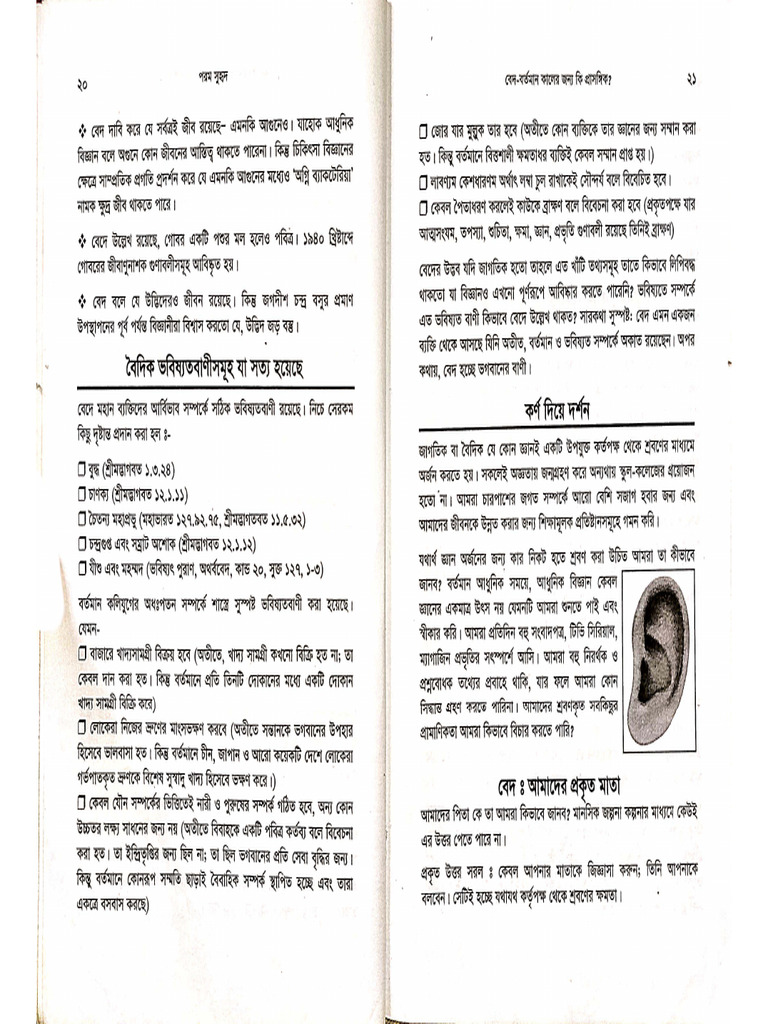 ২০
পরম সুহৃদ
❖ বেদ দাবি করে যে সর্বত্রই জীব রয়েছে– এমনকি আগুনেও। যাহোক আধুনিক
বিজ্ঞান বলে অগুনে কোন জীবনের আস্তিত্ব থাকতে পারেনা। কিন্তু চিকিৎসা বিজ্ঞানের
ক্ষেত্রে সাম্প্রতিক প্রগতি প্রদর্শন করে যে এমনকি আগুনের মধ্যেও ‘অগ্নি ব্যাকটেরিয়া’
নামক ক্ষুদ্র জীব থাকতে পারে।
❖ বেদে উল্লেখ রয়েছে, গোবর একটি পশুর মল হলেও পবিত্র। ১৯৪০ খ্রিষ্টাব্দে
গোবরের জীবাণুনাশক গুণাবলীসমূহ আবিষ্কৃত হয়।
❖ বেদ বলে যে উদ্ভিদেরও জীবন রয়েছে। কিন্তু জগদীশ চন্দ্র বসুর প্রমাণ
উপস্থাপনের পূর্ব পর্যন্ত বিজ্ঞানীরা বিশ্বাস করতো যে, উদ্ভিদ জড় বস্তু।
বৈদিক ভবিষ্যতবাণীসমূহ যা সত্য হয়েছে
বেদে মহান ব্যক্তিদের আর্বিভাব সম্পর্কে সঠিক ভবিষ্যতবাণী রয়েছে। নিচে সেরকম
কিছু দৃষ্টান্ত প্রদান করা হল ঃ-
❒ বুদ্ধ (শ্রীমদ্ভাগবত ১.৩.২৪)
❒ চাণক্য (শ্রীমদ্ভাগবত ১২.১.১১)
❒ চৈতন্য মহাপ্রভু (মহাভারত ১২৭.৯২.৭৫, শ্রীমদ্ভাগতবত ১১.৫.৩২)
❒ চন্দ্রগুপ্ত এবং সম্রাট অশোক (শ্রীমদ্ভাগবত ১২.১.১২)
❒ যীশু এবং মহম্মদ (ভবিষ্যৎ পুরাণ, অথর্ববেদ, কান্ড ২০, সুক্ত ১২৭, ১-৩)
বর্তমান কলিযুগের অধঃপতন সম্পর্কে শাস্ত্রে সুস্পষ্ট ভবিষ্যতবাণী করা হয়েছে।
যেমন-
❒ বাজারে খাদ্যসামগ্রী বিক্রয় হবে (অতীতে, খাদ্য সামগ্রী কখনো বিক্রি হত না; তা
কেবল দান করা হত। কিন্তু বর্তমানে প্রতি তিনটি দোকানের মধ্যে একটি দোকান
খাদ্য সামগ্রী বিক্রি করে)
❒ লোকেরা নিজের ভ্রুণের মাংসভক্ষণ করবে (অতীতে সন্তানকে ভগবানের উপহার
হিসেবে ভালবাসা হত। কিন্তু বর্তমানে চীন, জাপান ও আরো কয়েকটি দেশে লোকেরা
গর্ভপাতকৃত ভ্রুণকে বিশেষ সুস্বাদু খাদ্য হিসেবে ভক্ষণ করে।)
❒ কেবল যৌন সম্পর্কের ভিত্তিতেই নারী ও পুরুষের সম্পর্ক গঠিত হবে, অন্য কোন
উচ্চতর লক্ষ্য সাধনের জন্য নয় (অতীতে বিবাহকে একটি পবিত্র কর্তব্য বলে বিবেচনা
করা হত। তা ইন্দ্রিতৃপ্তির জন্য ছিল না; তা ছিল ভগবানের প্রতি সেবা বৃদ্ধির জন্য।
কিন্তু বর্তমানে কোনরূপ সম্মতি ছাড়াই বৈবাহিক সম্পর্ক স্থাপিত হচ্ছে এবং তারা
একত্রে বসবাস করছে)
বেদ-বর্তমান কালের জন্য কি প্রাসঙ্গিক?
২১
❒ জোর যার মুল্লুক তার হবে (অতীতে কোন ব্যক্তিকে তার জ্ঞানের জন্য সম্মান করা
হত। কিন্তু বর্তমানে বিত্তশালী ক্ষমতাধর ব্যক্তিই কেবল সম্মান প্রাপ্ত হয়।)
❒ লাবণ্যম কেশধারণম অর্থাৎ লম্বা চুল রাখাকেই সৌন্দর্য বলে বিবেচিত হবে।
❒ কেবল পৈতাধরণ করলেই কাউকে ব্রাহ্মণ বলে বিবেচনা করা হবে (প্রকৃতপক্ষে যার
আত্মসংযম, তপস্যা, শুচিতা, ক্ষমা, জ্ঞান, প্রভৃতি গুণাবলী রয়েছে তিনিই ব্রাহ্মণ)
বেদের উদ্ভব যদি জাগতিক হতো তাহলে এত খাঁটি তথ্যসমূহ তাতে কিভাবে লিপিবদ্ধ
থাকতো যা বিজ্ঞানও এখনো পূর্ণরূপে আবিষ্কার করতে পারেনি? ভবিষ্যতে সম্পর্কে
এত ভবিষ্যত বাণী কিভাবে বেদে উল্লেখ থাকত? সারকথা সুস্পষ্ট: বেদ এমন একজন
ব্যক্তি থেকে আসছে যিনি অতীত, বর্তমান ও ভবিষ্যত সম্পর্কে অকাত রয়েছেন। অপর
কথায়, বেদ হচ্ছে ভগবানের বাণী।
কর্ণ দিয়ে দর্শন
জাগতিক বা বৈদিক যে কোন জ্ঞানই একটি উপযুক্ত কর্তপক্ষ থেকে শ্রবণের মাধ্যমে
অর্জন করতে হয়। সকলেই অজ্ঞতায় জন্মগ্রহণ করে অন্যথায় স্কুল-কলেজের প্রয়োজন
হতো না। আমরা চারপাশের জগত সম্পর্কে আরো বেশি সজাগ হবার জন্য এবং
আমাদের জীবনকে উন্নত করার জন্য শিক্ষামূলক প্রতিষ্টানসমূহে গমন করি।
যথার্থ জ্ঞান অর্জনের জন্য কার নিকট হতে শ্রবণ করা উচিত আমরা তা কীভাবে
জানব? বর্তমান আধুনিক সময়ে, আধুনিক বিজ্ঞান কেবল
জ্ঞানের একমাত্র উৎস নয় যেমনটি আমরা শুনতে পাই এবং
স্বীকার করি। আমরা প্রতিদিন বহু সংবাদপত্র, টিভি সিরিয়াল,
ম্যাগাজিন প্রভৃতির সংস্পর্শে আসি। আমরা বহু নিরর্থক ও
প্রশ্নবোধক তথ্যের প্রবাহে থাকি, যার ফলে আমরা কোন
সিদ্ধান্ত গ্রহণ করতে পারিনা। আমাদের শ্রবণকৃত সবকিছুর
প্রামাণিকতা আমরা কিভাবে বিচার করতে পারি?
বেদ ঃ আমাদের প্রকৃত মাতা
আমাদের পিতা কে তা আমরা কিভাবে জানব? মানসিক জল্পনা কল্পনার মাধ্যমে কেউই
এর উত্তর পেতে পারে না।
প্রকৃত উত্তর সরল ঃ কেবল আপনার মাতাকে জিজ্ঞাসা করুন; তিনি আপনাকে
বলবেন। সেটিই হচ্ছে যথাযথ কর্তৃপক্ষ থেকে শ্রবণের ক্ষমতা।